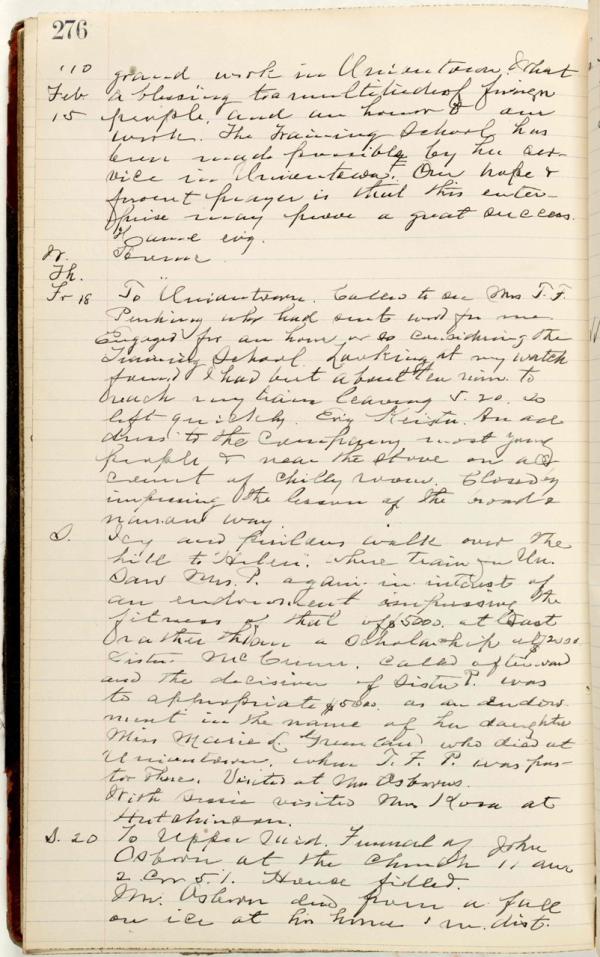 276
'10 grand work in Uniontown & that
Feb a blessing to a multitude of foreign
15 people, and an honor to our
work. The Training School has
been made possible by her ser-
vice in Uniontown. Our hope &
fervent prayer is that this enter-
prise may prove a great success.
Home evg.
W. Same
Th.
Fr 18 To Uniontown. Called to see Mrs T. F.
who had sent word for me.
Engaged for an hour or so considering the
Training School. Looking at my watch
found I had but about ten min. to
reach my train leaving 5.20. So
left quickly. Evg Keister. An ad
dress to the company most young
people & near the stove on ac
count of chilly room. Closed by
impressing the lesson of the broad &
narrow way.
S. Icy and perilous walk over the
hill to "Helen", there train to Un.
Saw Mrs. P. again in interest of
an endowment impressing the
fitness of that of $5000. at least
rather than a scholarship of $2000.
Sister McCunn. called afterward
and the decision of Sister P. was
to appropriate $5000. as an endow
ment in the name of her daughter
Miss Marie L. who died at
Uniontown, when T. F. P. was pas-
tor there. Visited at Mrs Osborns.
With visited Mrs Rosa at
Hutchinson.
S. 20 To Upper Mid. Funeral of John
Osborn at the church 11 am
2 Cor 5.1. House filled.
Mr. Osborn died from a fall
on ice at his home in dist.